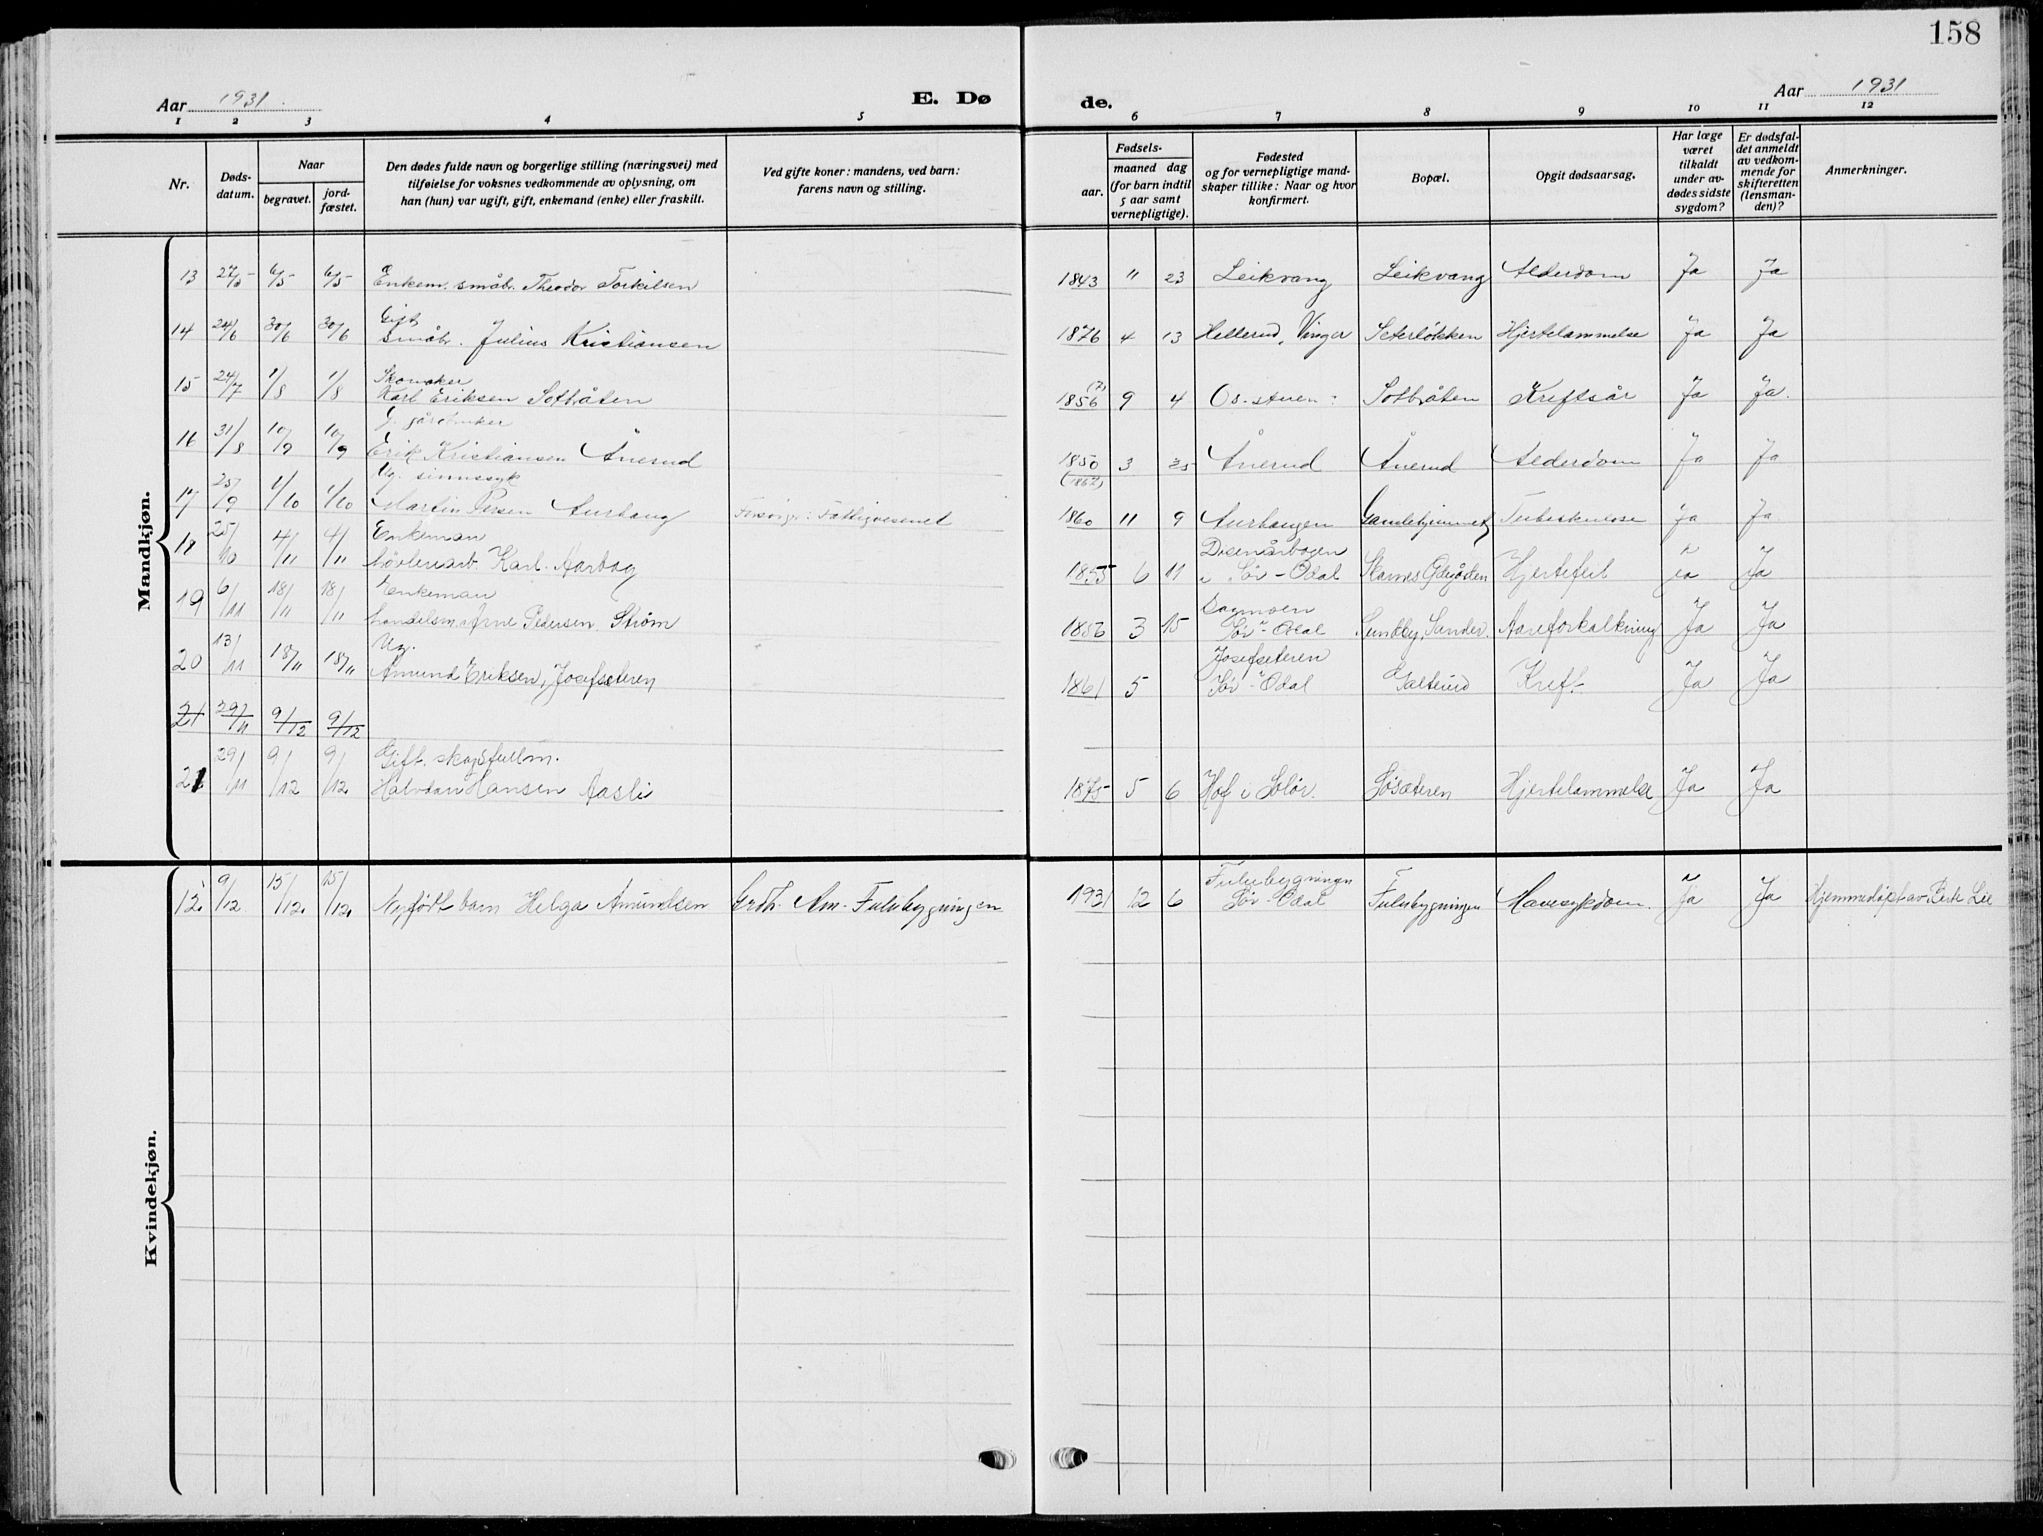 158
Aar 1931
E. Dø
de.
Aar 1931
1 2 3 4 5 6 7 8 9 10 11 12
Nr.
Dødsdatum.
Naar
begravet.
jordfæstet.
Den dødes fulde navn og borgerlige stilling (næringsvei) med
tilføielse for voksnes vedkommende av oplysning, om
han (hun) var ugift, gift, enkemand (enke) eller fraskilt.
Ved gifte koner: mandens, ved barn:
farens navn og stilling.
Fødsels-
aar.
maaned dag
(for barn indtil
5 aar samt
vernepligtige).
Fødested
og for vernepligtige mandskaper tillike: Naar og hvor
konfirmert.
Bopæl.
Opgit dødsaarsag.
Har læge
været
tilkaldt
under avdødes sidste
sygdom?
Er dødsfaldet anmeldt
av vedkommende for
skifteretten
(lensmanden)?
Anmerkninger.
Mandkjøn.
13 27/5 6/5 6/5 Enkem. småbr. Theodor Torkilsen 1843 " 23 Leikvang Leikvang Alderdom Ja Ja
14 24/6 30/6 30/6 Gift
Småbr. Julius Kristiansen 1876 4 13 Hellerud, Vinger Seterløkken Hjertelammelse Ja Ja
15 24/7 1/8 1/8 Skomaker
Karl Eriksen Sotbråten 1856 (?) 9 4 Os- Sotbråten Kreftsår Ja Ja.
16 31/8 10/9 10/9 G. gårdbruker
Erik Kristiansen Ånerud 1850 3 25 Ånerud Ånerud Alderdom Ja Ja
17 25/9 1/10 1/10 Ug. sinnssyk
Martin Persen Aurhaug Forsørger: Fattigvesenet (1862) 1860 11 9 Aurhaugen Gamlehjemmet Tuberkulose Ja Ja
18 25/10 4/11 4/11 Enkeman
høvleriarb. Karl Aarbog 1855 6 11 Disenårbogen
i Sør-Odal Skarnes Hjertefeil ja Ja
19 6/11 18/11 18/11 Enkeman
handelsm. Arne Pedersen Strøm 1856 3 15 Sagmoen
Sør-Odal Sundby, Sander. Aareforkalkning Ja Ja
20 13/11 18/11 18/11 Ug.
Amund Eriksen, Josefseteren 1861 5 Josefseteren
Sør-Odal Galterud Kreft Ja Ja
21 29/11 9/12 9/12
21 29/11 9/12 9/12 Gift. skogsfullm.
Halvdan Hansen Aasli 1875 5 6 Hof i Solør. Gjøseteren Hjertelammelse Ja Ja
Kvindekjøn.
12. 9/12 15/12. 15/12. Nyfødt barn Helga Amundsen Grdb. Am. Fulubygningen 1931 12 6 Fulubygningen
Sør-Odal Fulubygningen Mavesykdom. Ja Ja Hjemmedøpt av Berte Lie